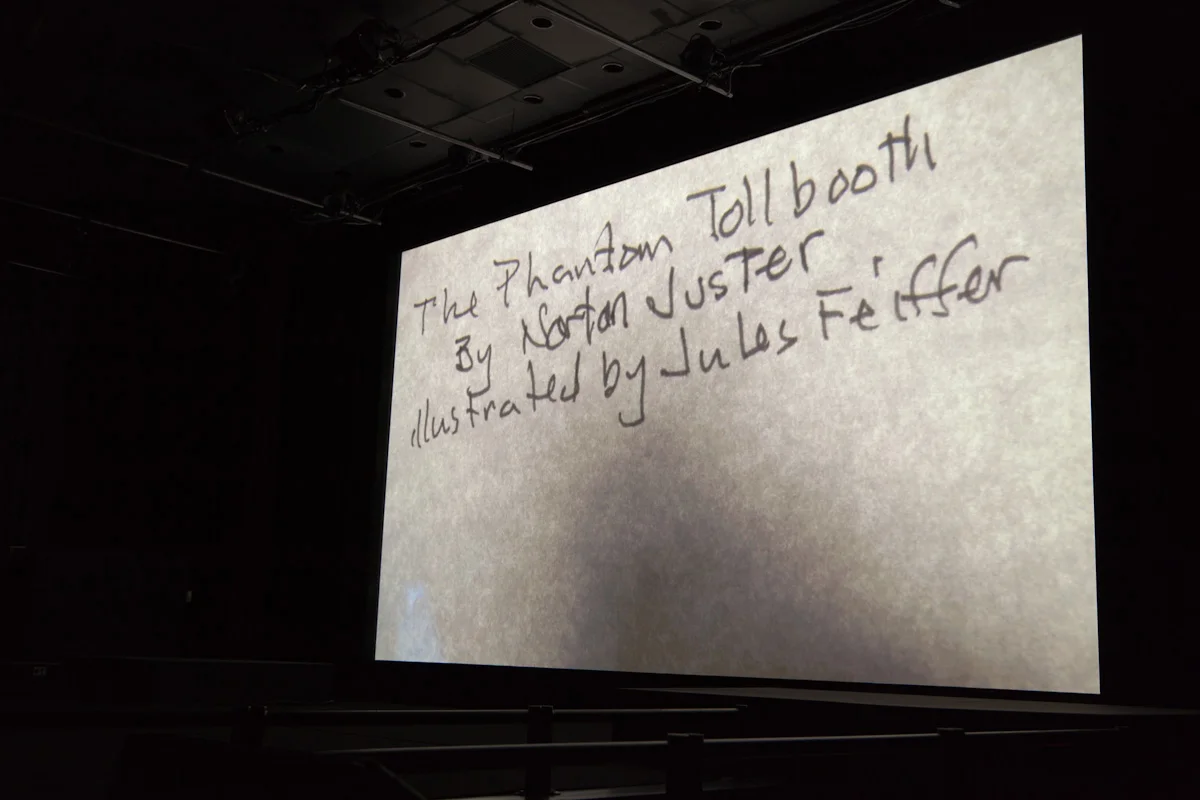 The Phantom Tollbooth
By Norton Juster
illustrated by Jules Feiffer